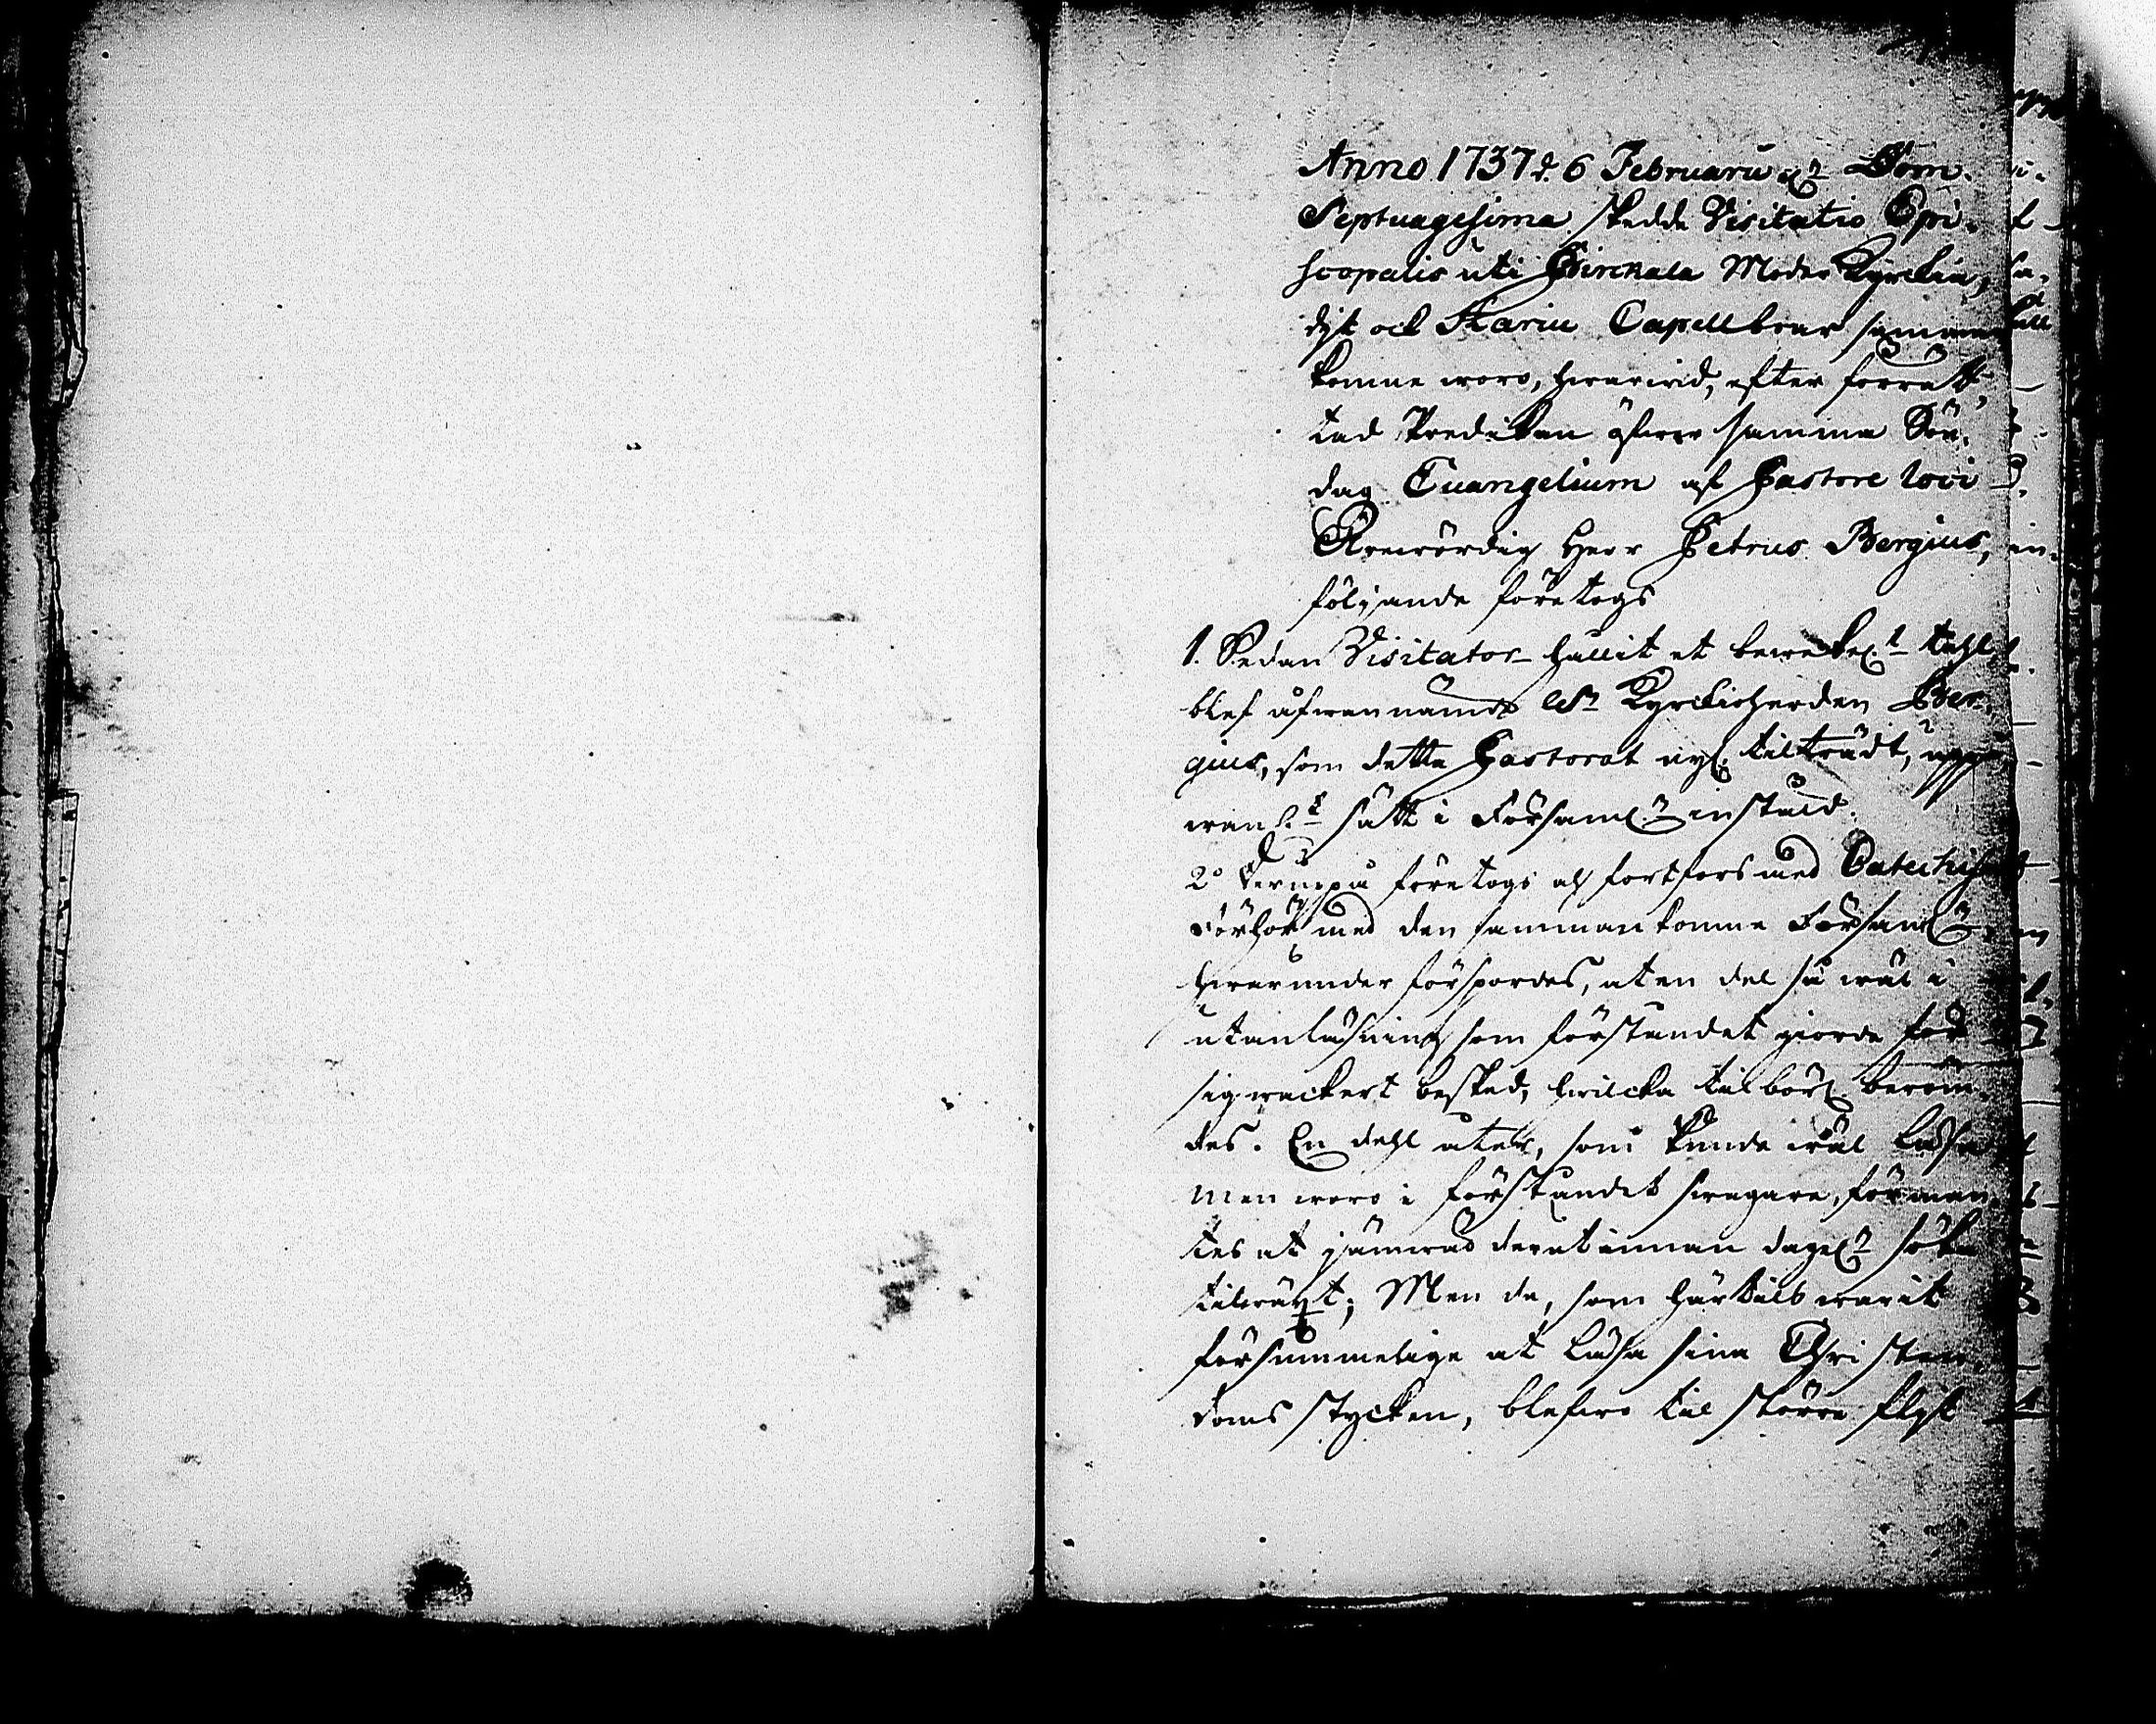 Anno 1737 d. 6 Februarii el. Dom.
Septuagesima skedde Visitatio Epi-
scopalis uti Birckala Moder Kyrckia,
dijt och Harju Capellboar samman
komne woro, hwarwid, efter förrät-
tad Predikan öfwer samma Sön-
dag Euangelium af Pastore loci
Ärewördig Herr Petrus Bergius,
följande företogs
1. Sedan Visitator hållit et bewekel.t tahl
blef ofwannämde Kyrckioherden Ber-
gius, som detta Pastorat nyl. tilträdt, uppå
wanl.t sätt i Församl. instäld.
2o Derneppå företogs och fortfors med Catechismi
Förhör med den sammankomne Församl.
hwarunder förspordes, at en del så wäl i
utanläsning som förståndet giorde för
sig wackert besked, hwilcka tilbörl. beröm-
des. En dehl åter, som kunde wäl läsa
men woro i förståndet swagare, förman-
tes at jämwäl derutinnan dagel. söka
tilwäxt; Men de, som härtils warit
försummelige at läsa sina Christen-
doms stycken, blefwo til större flijt